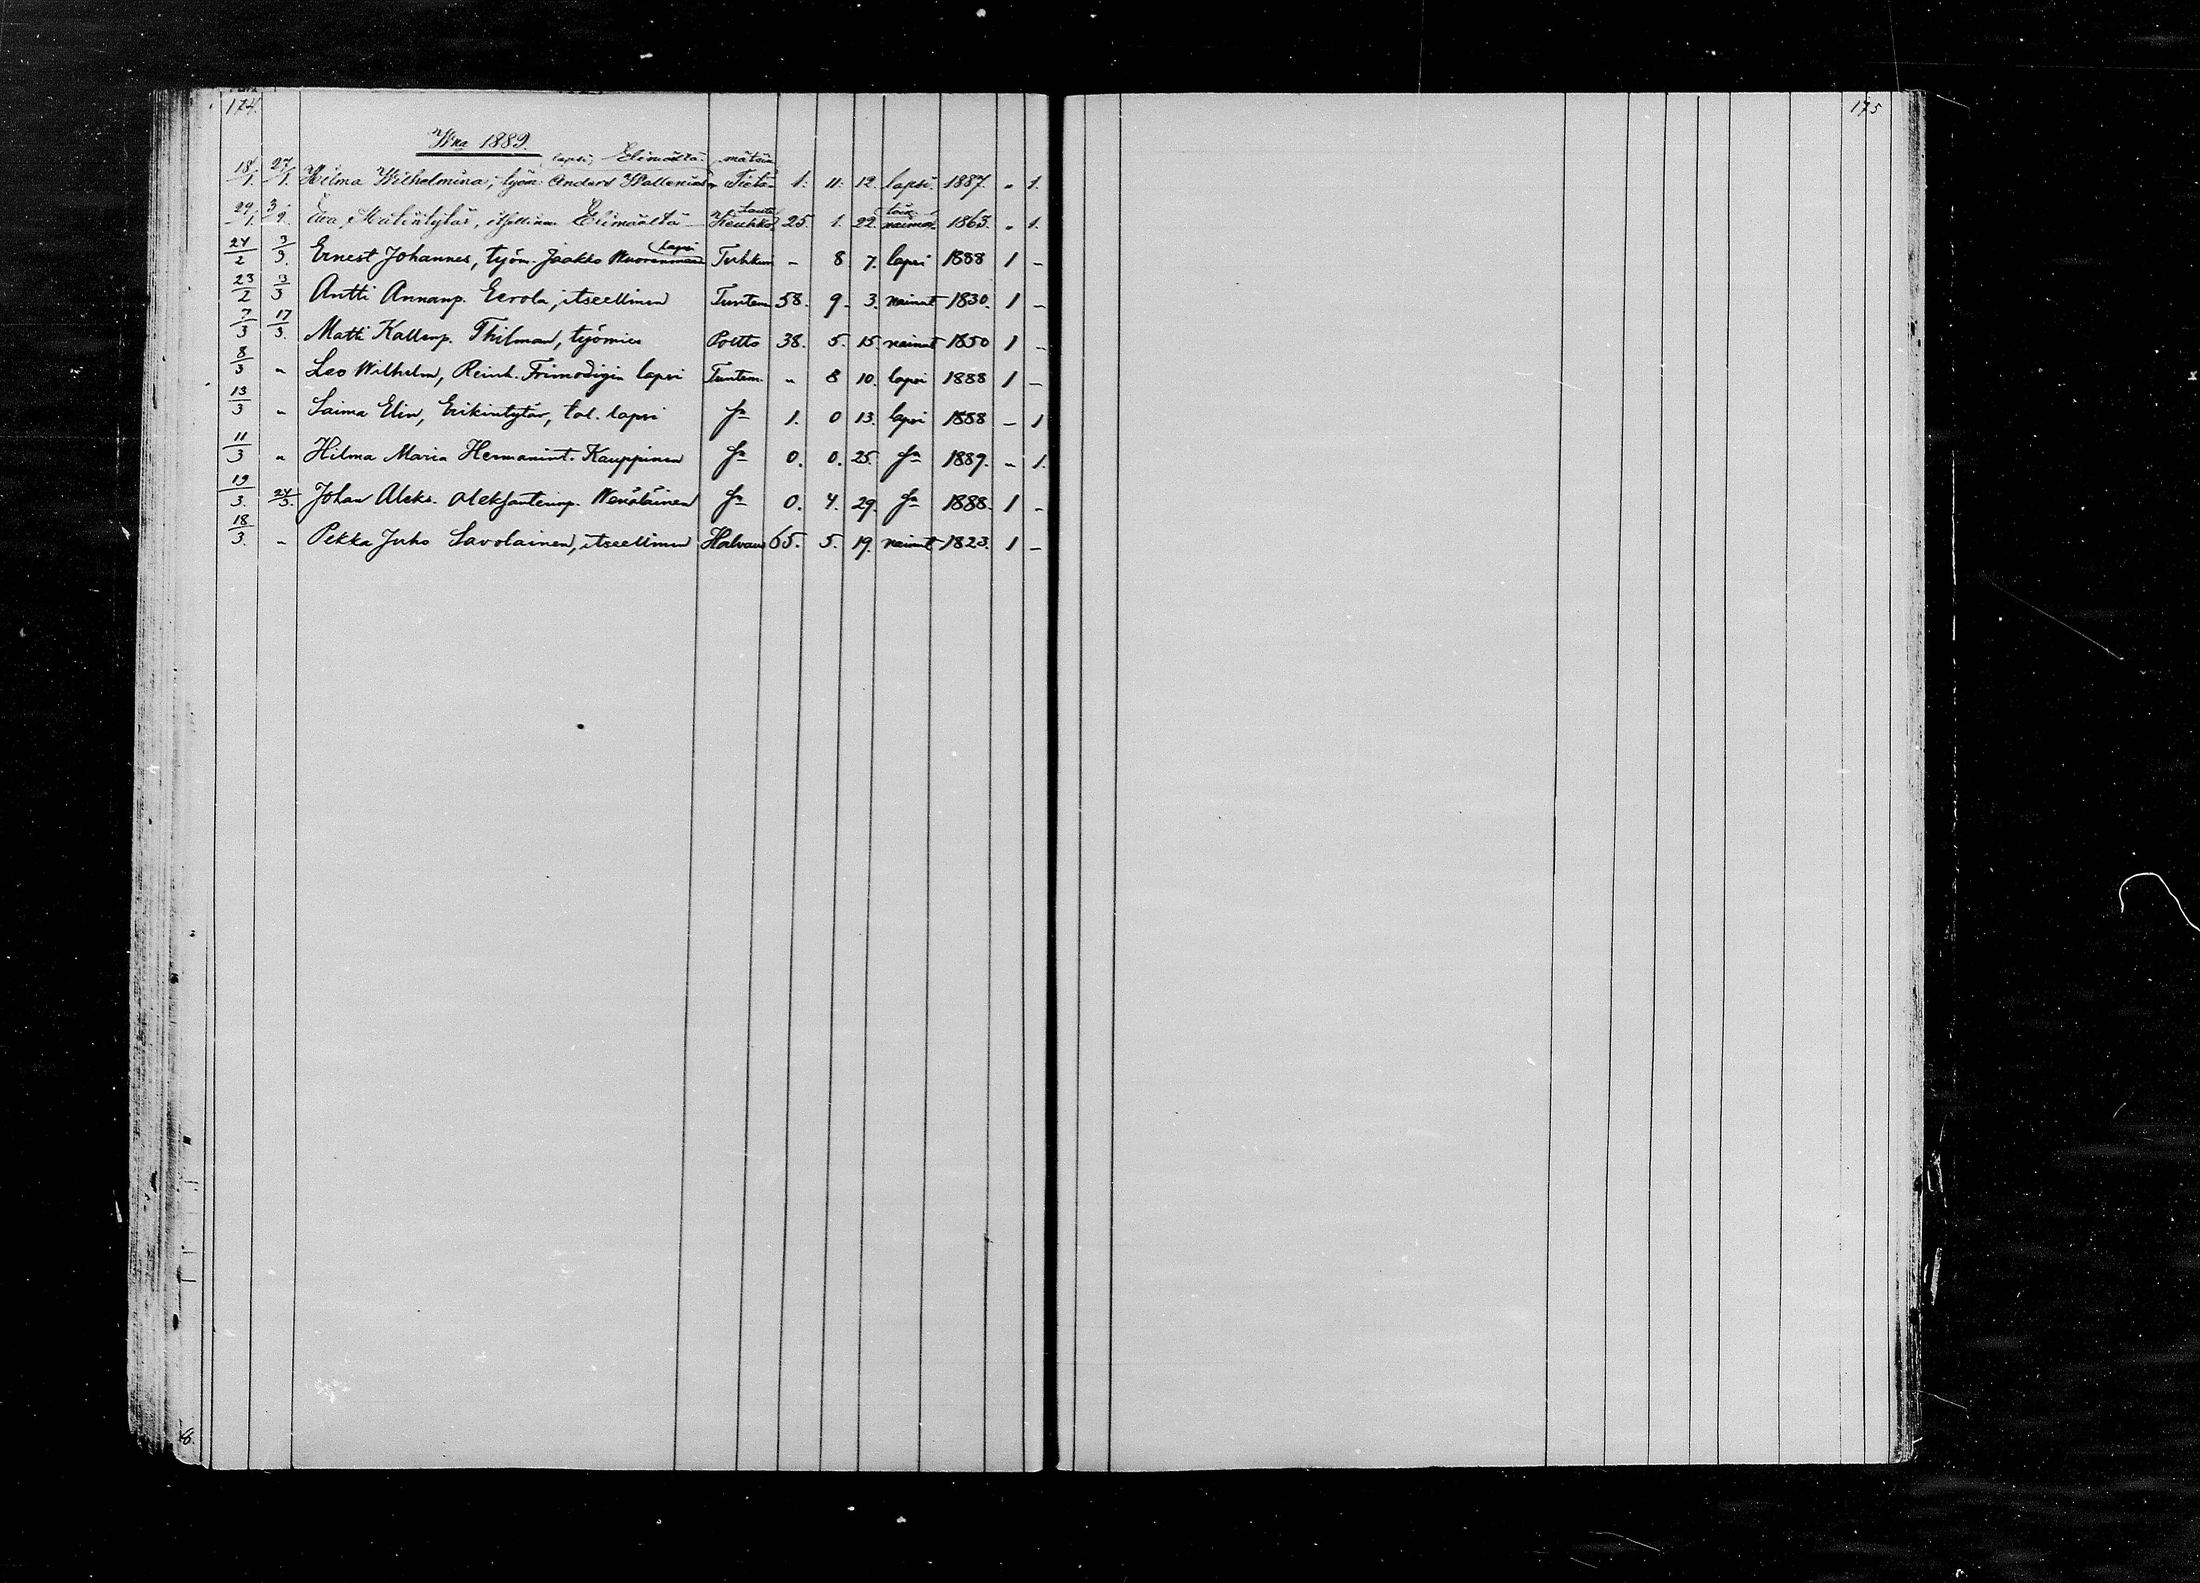 174.
Wna 1889.
lapsi, Elimäeltä. mätön
18/1. 27/1. Hilma Wilhelmina, työm. Anders Walleniuks Tietä- 1. 11. 12. lapsi. 1887. " 1.
Keuhko tauti 25. 1. 22. naimat. 1863. " 1.
29/1. 3/ Eva Matintytär, itsellinen Elimäeltä
lapsi
24/2 3/3. Ernest Johannes, työm. Jaakko Wuorenmaa Tuhkur. - 8 7. lapsi 1888 1 -
23/2 3/3 Antti Annanp. Eerola, itsellinen Tuntem. 58. 9. 3. nainut 1830. 1 -
7/3 17/3. Matti Kallenp. Thilman, työmies Poltto 38. 5. 15. nainut 1850 1 -
8/3 " Leo Wilhelm, Reinh. Frimodigin lapsi Tuntem. " 8 10. lapsi 1888 1 -
13/3 " Saima Elin, Erikintytär, tal. lapsi Sn 1. 0 13. lapsi 1888 - 1
11/3 " Hilma Maria Hermanint. Kauppinen Sn 0. 0. 25. Sn 1889. " 1.
19/3. 24/3. Johan Aleks. Aleksanterinp. Wenäläinen Sn 0. 4. 29. Sn 1888. 1 -
18/3. " Pekka Juho Savolainen, itsellinen Halvaus 65. 5. 19. nainut 1823. 1 -
175